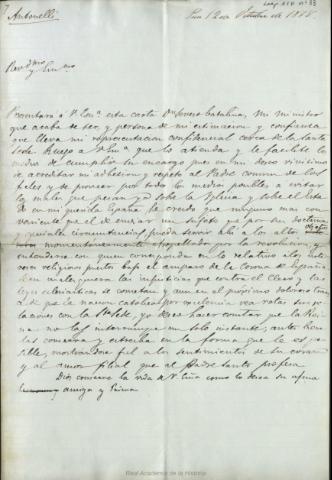 Antonelli
Leg. XXV nº 33
Pau 12 de Octubre de 1868.
Revdmo
y Emmo
Presentará a V. Emª esta carta Dn Severo Catalina, Mi Ministro
que acaba de ser, y persona de mi estimacion y confianza
que lleva mi representacion confidencial cerca de la Santa
Sede. Ruego a V. Emª que lo atienda y le facilite los
medios de cumplir su encargo que es mi deseo vivisimo
de acreditar mi adhesion y respeto al Padre comun de los
fieles y de procurar por todos los medios posibles a evitar
los males que pesan ya sobre la Iglesia y sobre el
de mi querida España. He creido que ninguno mas con-
veniente que el de enviar un sujeto que por su doctrina
y especiales circunstancias pueda servir alli a los altos objetos
momentaneamente atropellados por la revolucion, y
entenderse con quien corresponda en lo relativo a los
religiosos puestos bajo el amparo de la Corona de España
las injusticias que contra el Clero y las
se cometan y aun en el proximo doloroso tran-
ce de que la nacion catolica por excelencia vea rotas sus re-
laciones con la Sta Sede, yo deseo hacer constar que la Rei-
na no las interrumpe un solo instante, antes bien
las conserva y estrecha en la forma que le es po-
sible, mostrandose fiel a los sentimientos de su corazon
y al amor filial que al Padre Santo profesa.
Dios conserve la vida de V. Emª como lo desea su afma
amiga y Prima
Real Academia de la Historia